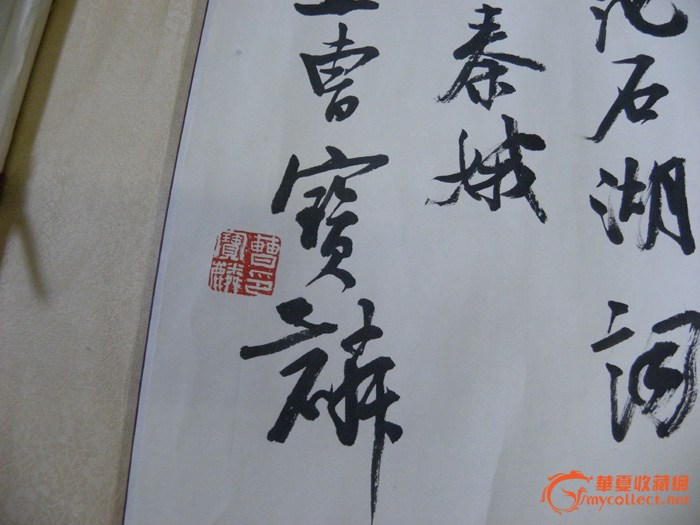 石湖词
秦娥
曹寶麟
曹寶麟印
華夏收藏網
mycollect.net